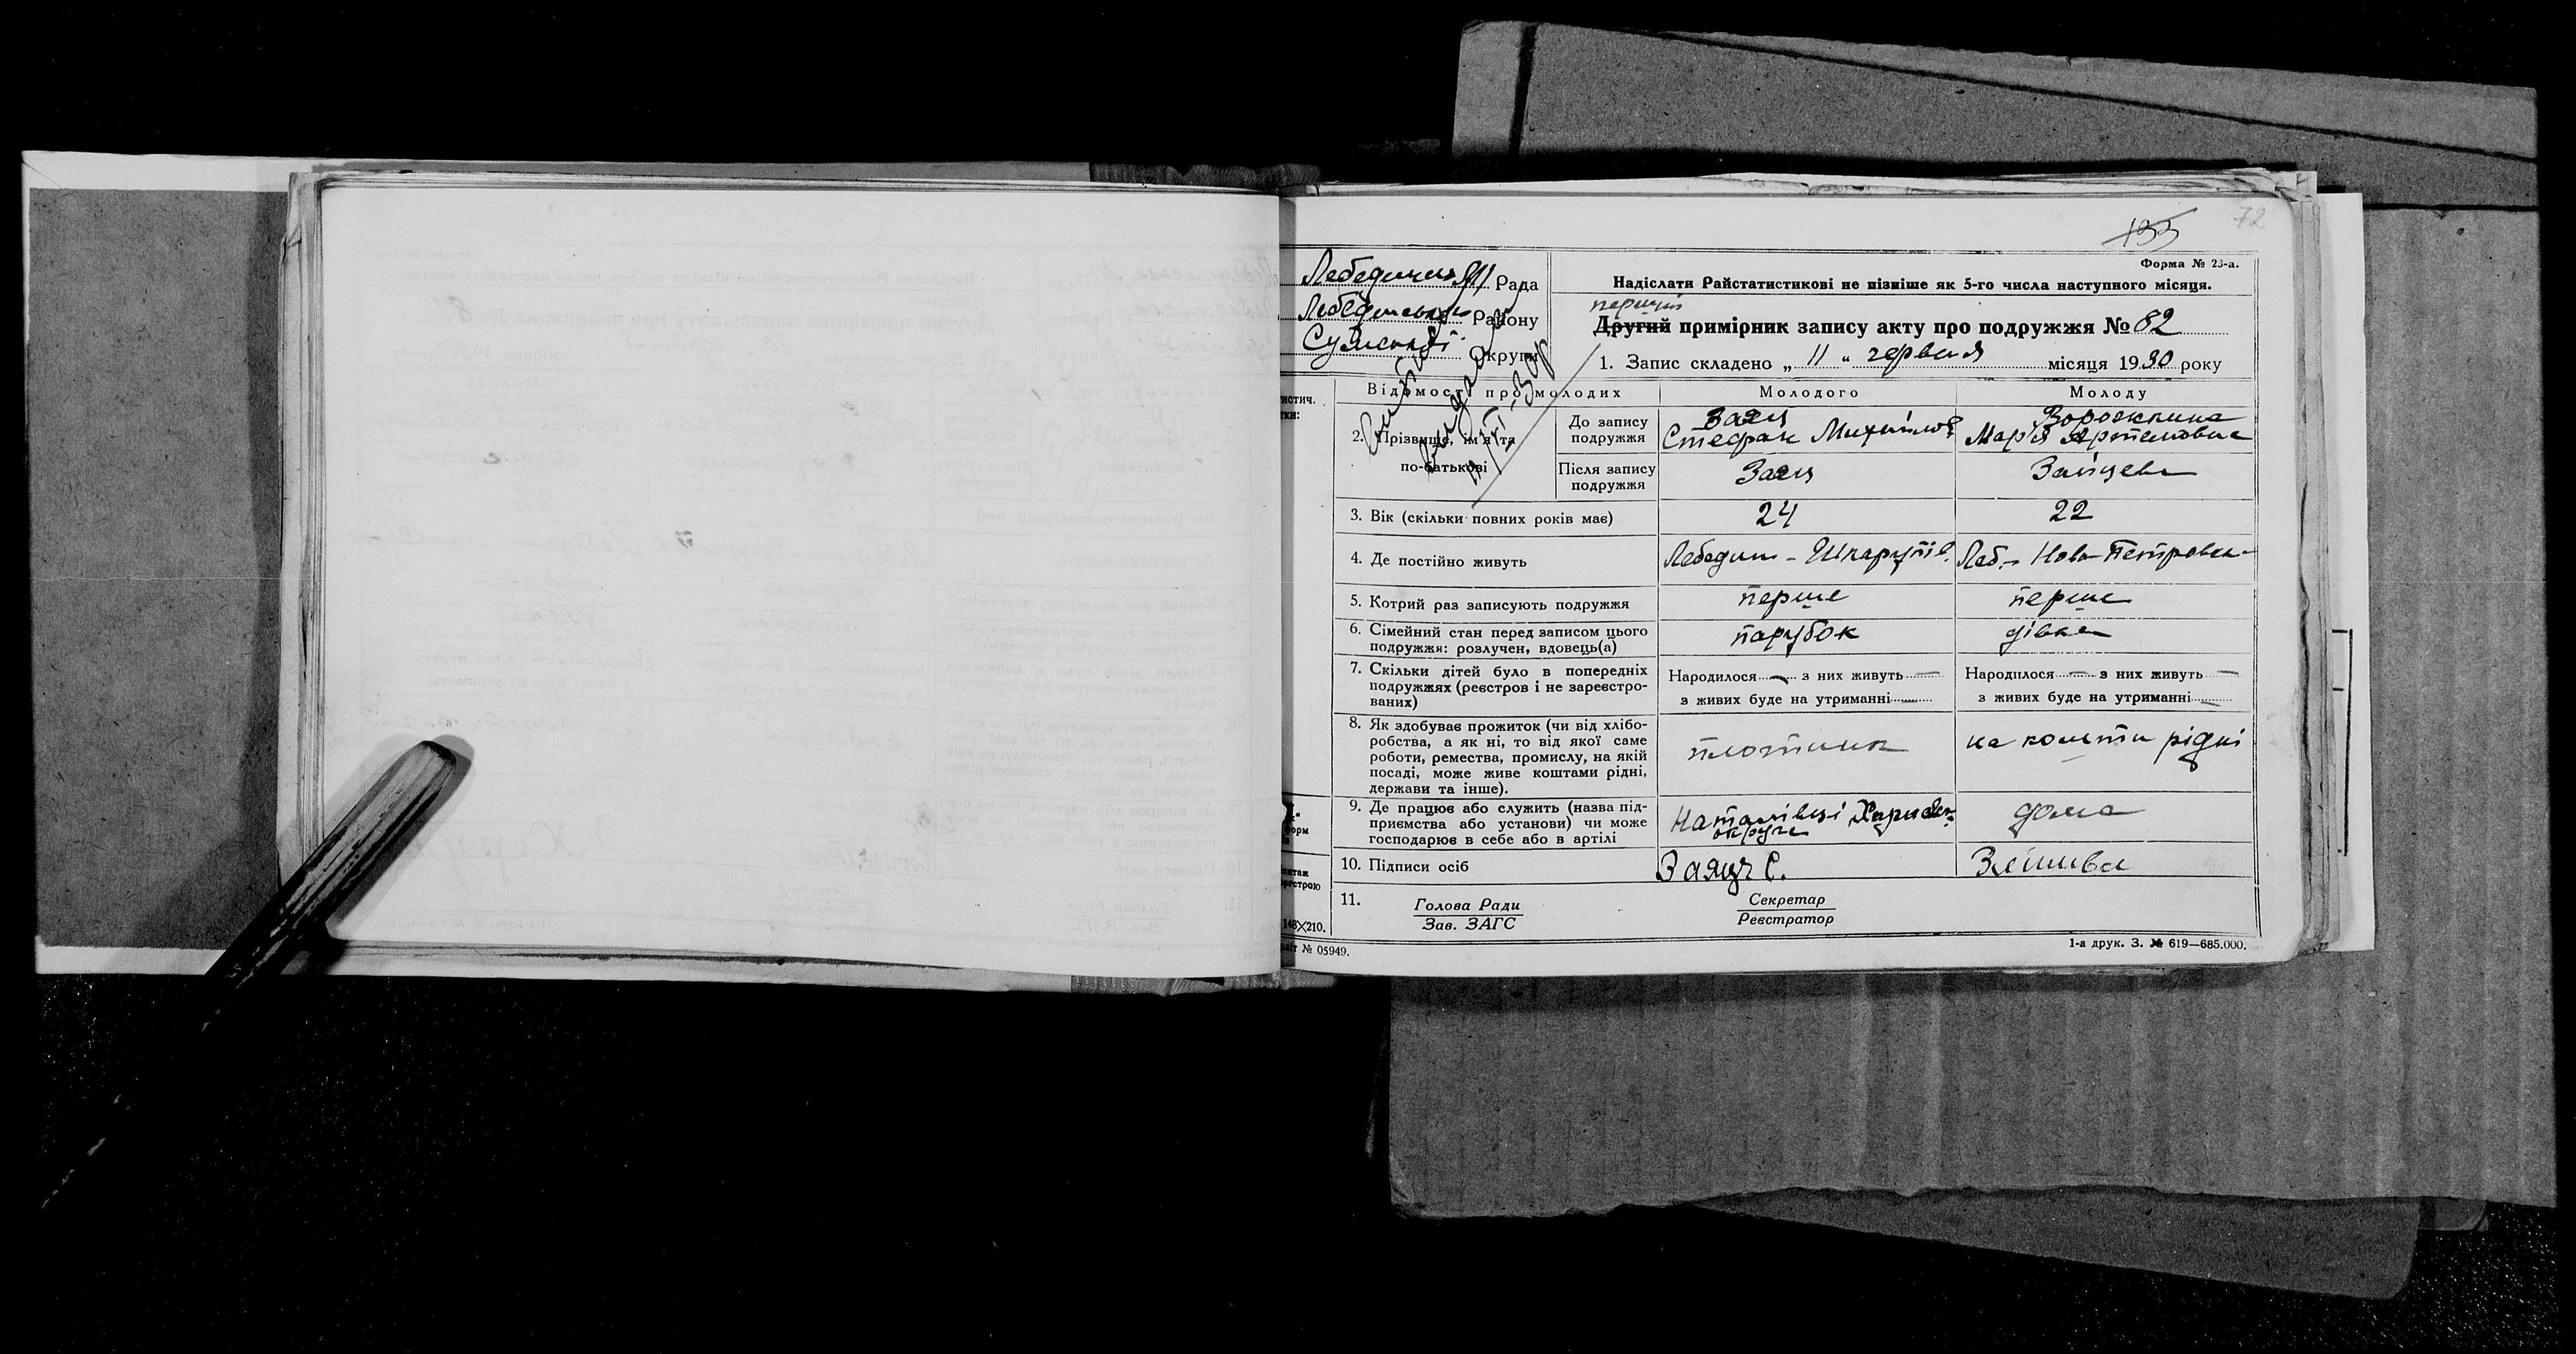 133
72
Форма № 23-а.
Рада
Лебединського Району
Сумської Округи
Надіслати Райстатистикові не пізніше як 5-го числа наступного місяця.
перший
Другий примірник запису акту про подружжя № 82
1. Запис складено „ 11 “ червня місяця 1930 року
Відомості про молодих
Молодого
Молоду
2. Прізвище, ім'я та по-батькові
До запису подружжя
Заєц
Стефан Михайлов
Ворожкина
Мар'я Артемовна
Після запису подружжя
Заєц
Зайцева
3. Вік (скільки повних років має)
24
22
4. Де постійно живуть
Лебедин - Шкарупів.
Леб. - Ново-Петровка
5. Котрий раз записують подружжя
перше
перше
6. Сімейний стан перед записом цього
подружжя: розлучен, вдовець(а)
парубок
дівка
7. Скільки дітей було в попередніх
подружжях (реєстров і не зареєстро-
ваних)
Народилося — з них живуть —
з живих буде на утриманні
Народилося — з них живуть —
з живих буде на утриманні
8. Як здобуває прожиток (чи від хлібо-
робства, а як ні, то від якої саме
роботи, ремества, промислу, на якій
посаді, може живе коштами рідні,
держави та інше).
плотник
на кошти рідні
9. Де працює або служить (назва під-
приємства або установи) чи може
господарює в себе або в артілі
округи
дома
10. Підписи осіб
Заяц С.
11.
Голова Ради
Зав. ЗАГС
Секретар
Реєстратор
148×210.
№ 05949.
1-а друк. З. № 619—685.000.